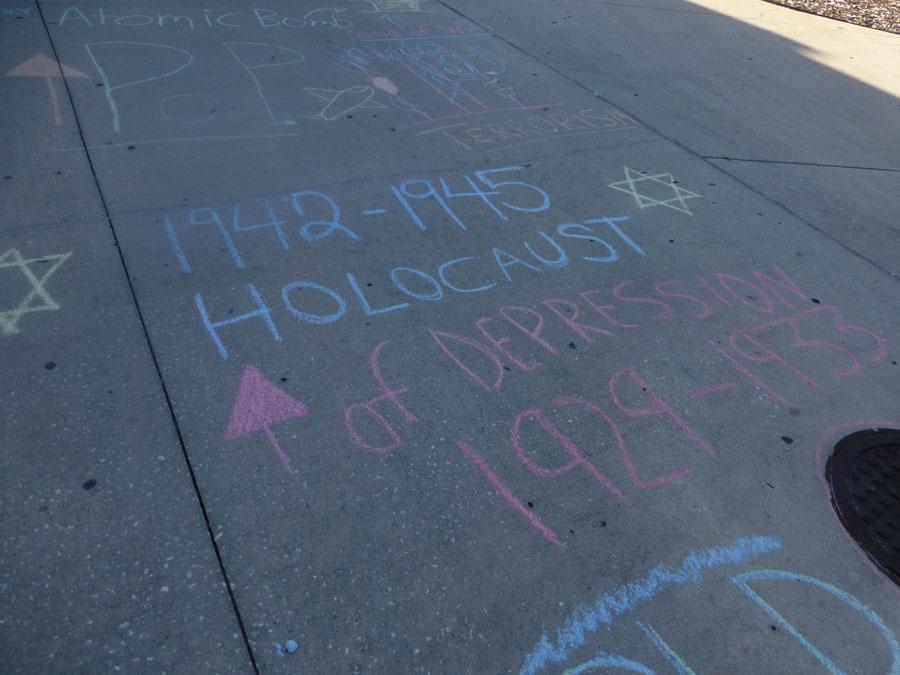 Atomic Bomb
POP
TERRORISM
1942-1945
HOLOCAUST
of DEPRESSION
1929-1933